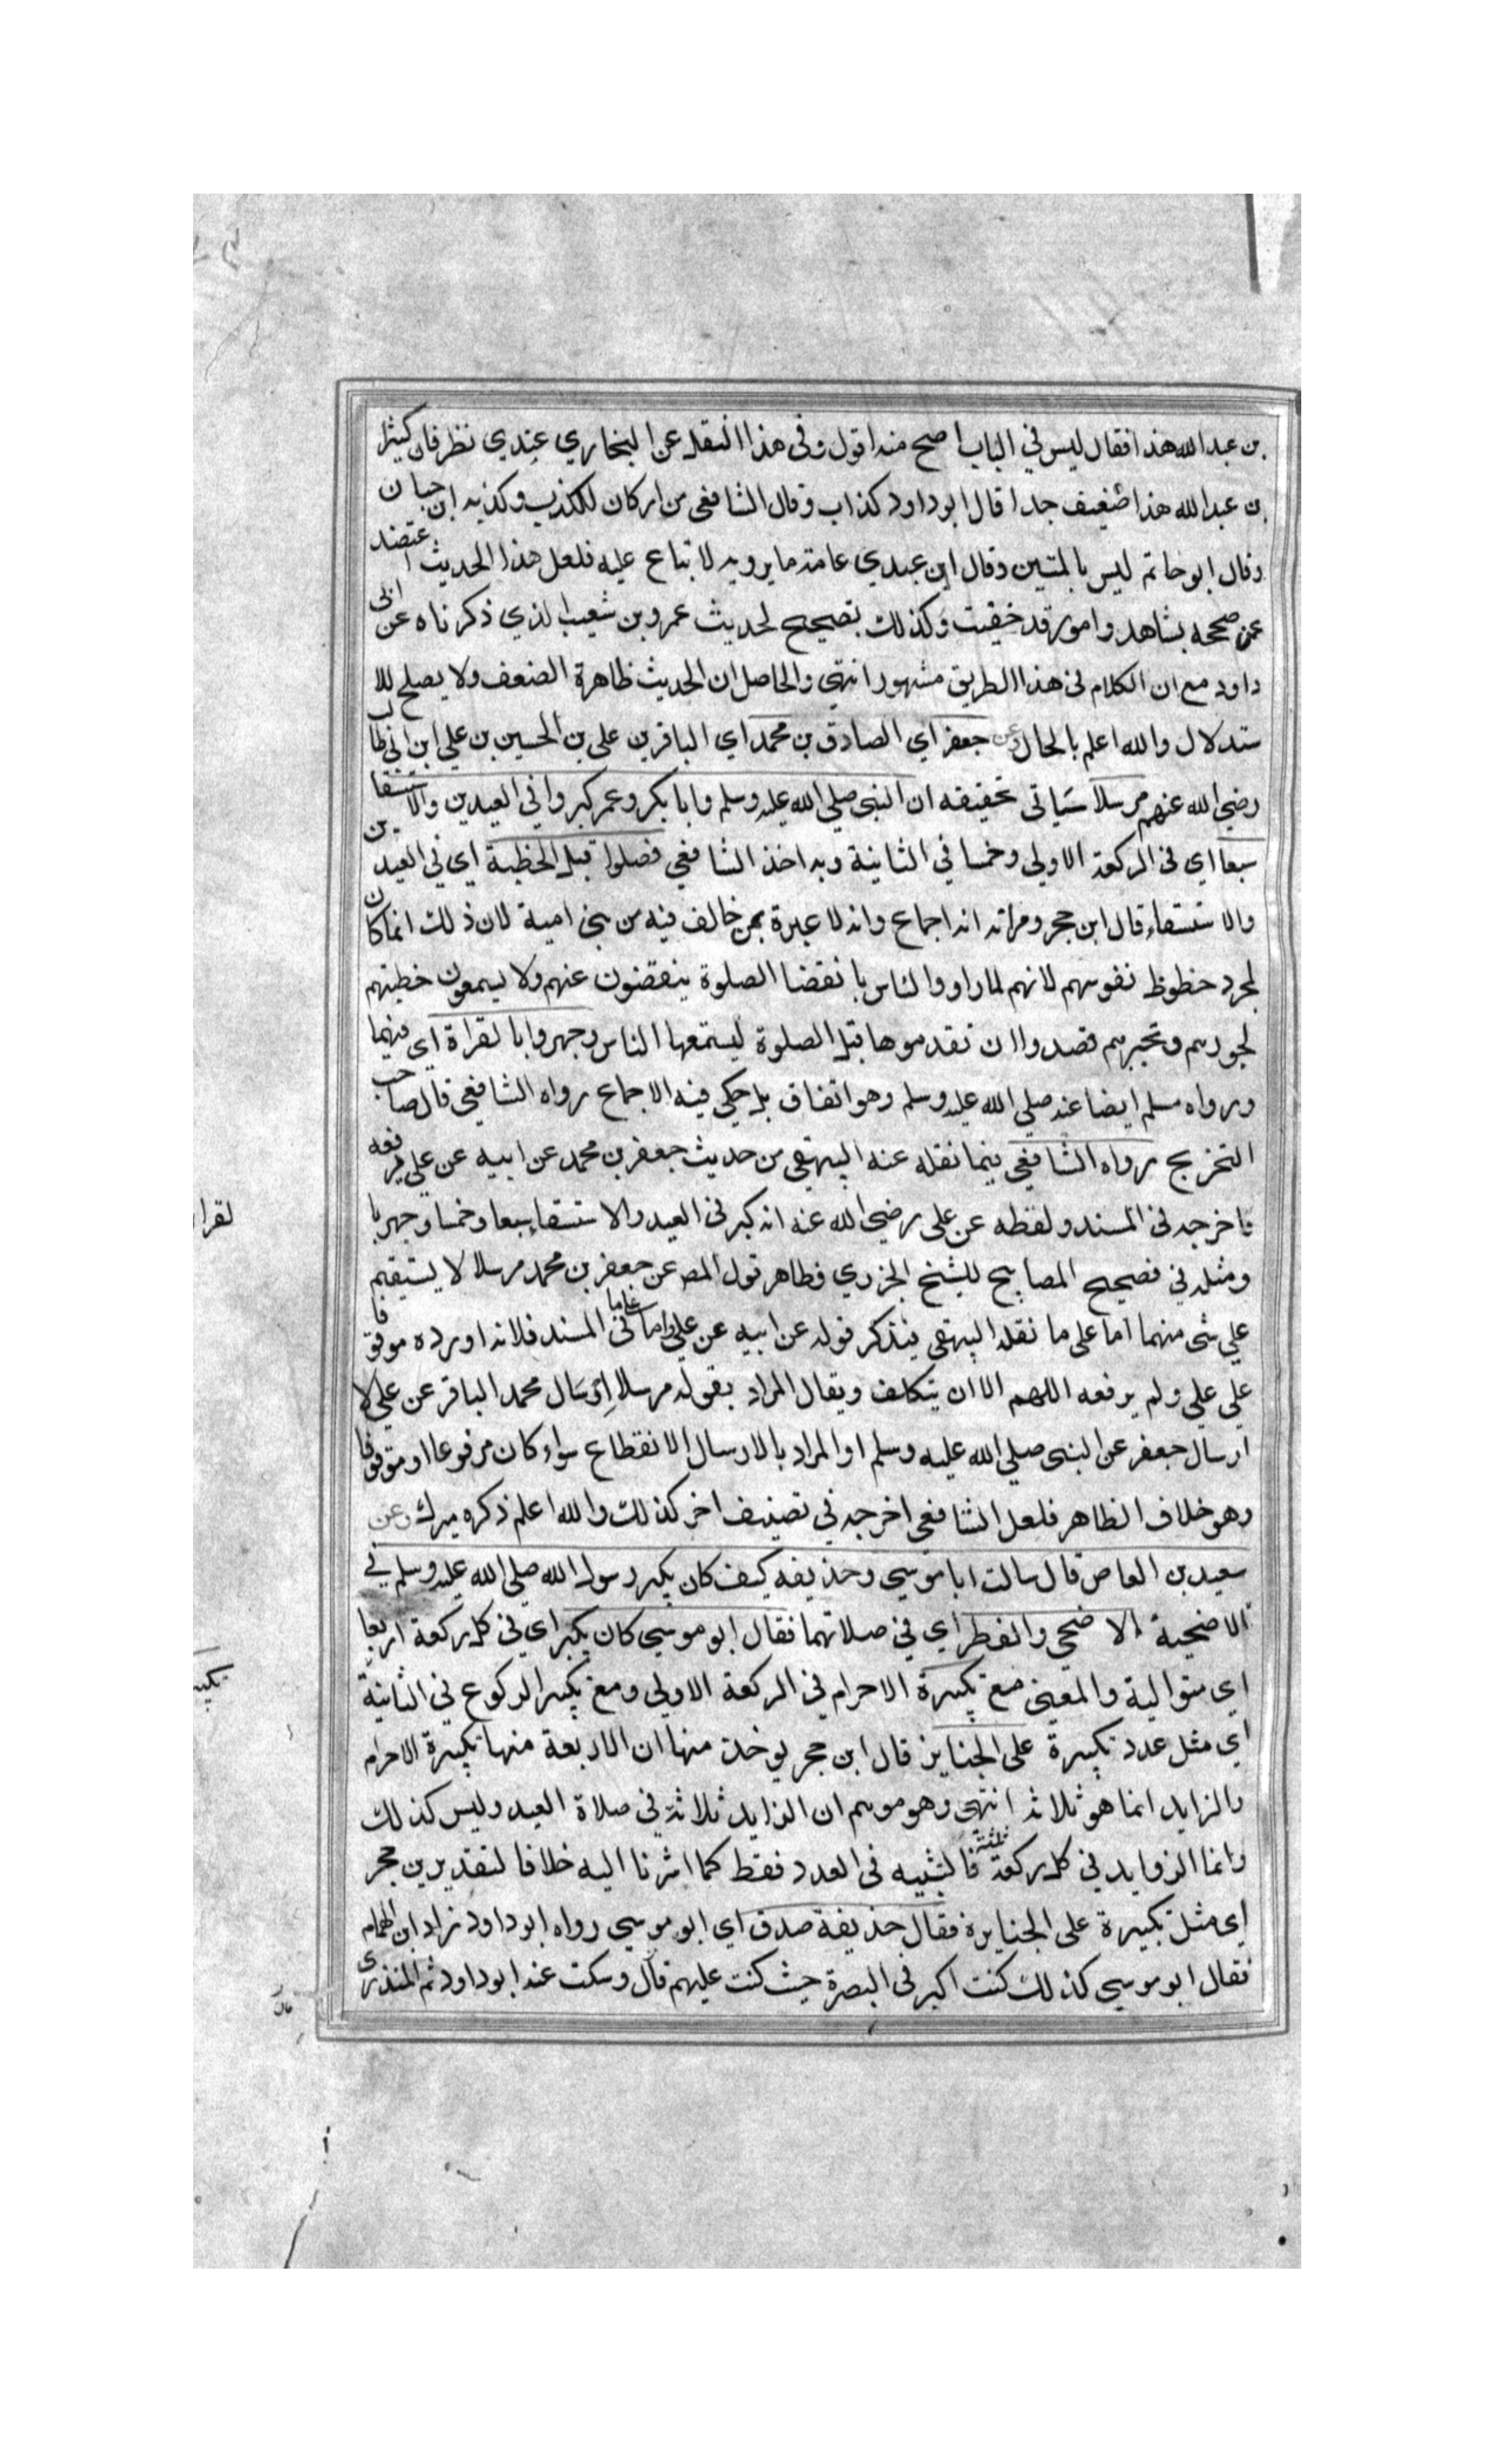 بن عبد الله هذا فقال ليس في الباب اصح منه اقول وفى هذا النقل عن البخاري عندي نظر فان كثير
بن عبد الله هذا ضعيف جدا قال ابو داود كذاب وقال الشافعى من اركان للكذب وكذبه ابن حبان
وقال ابو حاتم ليس بالمتين وقال ابن عبدي عامة ما يرويه لا تباع عليه فلعل هذا الحديث اعتضد
عن صححه بشاهد وامور قد خفيت وكذلك تصحيح لحديث عمرو بن شعيب الذي ذكرناه عن ابى
داود مع ان الكلام فى هذا الطريق مشهور انتهى والحاصل ان الحديث ظاهرة الضعف ولا يصلح للا
ستدلال والله اعلم بالحال وعن جعفر اي الصادق بن محمد اي الباقر بن على بن الحسين بن علي ابن ابى طالب
رضي الله عنهم مرسلا سياتى تحقيقه ان النبى صلي الله عليه وسلم وابا بكر وعمر كبروا في العيدين والاستسقا
سبعا اي فى الركعة الاولي وخمسا في الثانية وبه اخذ الشافعي فصلوا قبل الخطبة اي في العيدين
والاستسقاء قال ابن حجر ومراته انه اجماع وانه لا عبرة بمن خالف فيه من بنى امية لان ذلك انما كان
لمجرد حظوظ نفوسهم لانهم لما راوو الناس بانقضا الصلوة ينفضون عنهم ولا يسمعون خطبتهم
لجورهم وتجبرهم قصدوا ان تقدموها قبل الصلوة ليستمعها الناس وجهروا بالقراة اي فيهما
ورواه مسلم ايضا عنه صلي الله عليه وسلم وهو اتفاق بل حكي فيه الاجماع رواه الشافعي قال صاحب
التخريج رواه الشافعي فيما نقله عنه البيهقي من حديث جعفر بن محمد عن ابيه عن علي رفعه
فاخرجه فى المسند ولفظه عن على رضي الله عنه انه كبر فى العيد والاستسقاء سبعا وخمسا وجهر با
لقرا
ومثله في تصحيح المصابيح للشيخ الجزري فظاهر قول المص عن جعفر بن محمد مرسلا لا يستيقم
علي شى منهما اما على ما نقله البيهقى فيذكر قوله عن ابيه عن علي واما على ما فى المسند فلانه اورده موقوفا
علي علي ولم يرفعه اللهم الا ان يتكلف ويقال المراد بقوله مرسلا ارسال محمد الباقر عن علي لا
ارسال جعفر عن النبى صلي الله عليه وسلم او المراد بالارسال الانقطاع سواء كان مرفوعا او موقوفا
وهو خلاف الظاهر فلعل الشافعى اخرجه في تصنيف اخر كذلك والله اعلم ذكره ميرك وعن
سعيد بن العاص قال سالت ابا موسي وحذيفه كيف كان يكبر رسول الله صلي الله عليه وسلم في
الاضحية الاضحي والفطر اي في صلاتهما فقال ابو موسي كان يكبر اي في كل ركعة اربعا
تكبير
اي متوالية والمعنى مع تكبيرة الاحرام في الركعة الاولي ومع تكبير الركوع في الثانية
اي مثل عدد تكبيرة على الجنايز قال ابن حجر يوخذ منها ان الاربعة منها تكبيرة الاحرام
والزايد انما هو ثلاثة انتهى وهو موهم ان الزايد ثلاثة في صلاة العيد وليس كذلك
وانما الزوايد في كل ركعة ثلثة فالتشبيه فى العدد فقط كما اشرنا اليه خلافا لتقدير بن حجر
اي مثل تكبيرة على الجنايزة فقال حذيفة صدق اي ابو موسي رواه ابو داود زاد ابن الهمام
فقال ابو موسي كذلك كنت اكبر فى البصرة حيث كنت عليهم قال وسكت عنه ابو داود ثم المنذرى